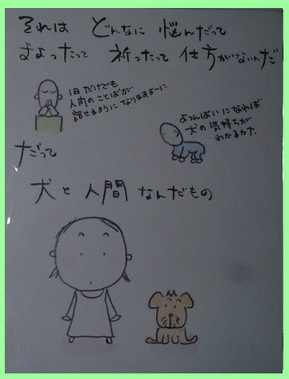 それは どんなに 悩んだって
まよったって 祈ったって 仕方がないんだ
1日だけでも
人間のことばが
話せるように なりますよーに
よつんばいになれば
犬の気持ちが
わかるかナ
だって
犬と人間なんだもの